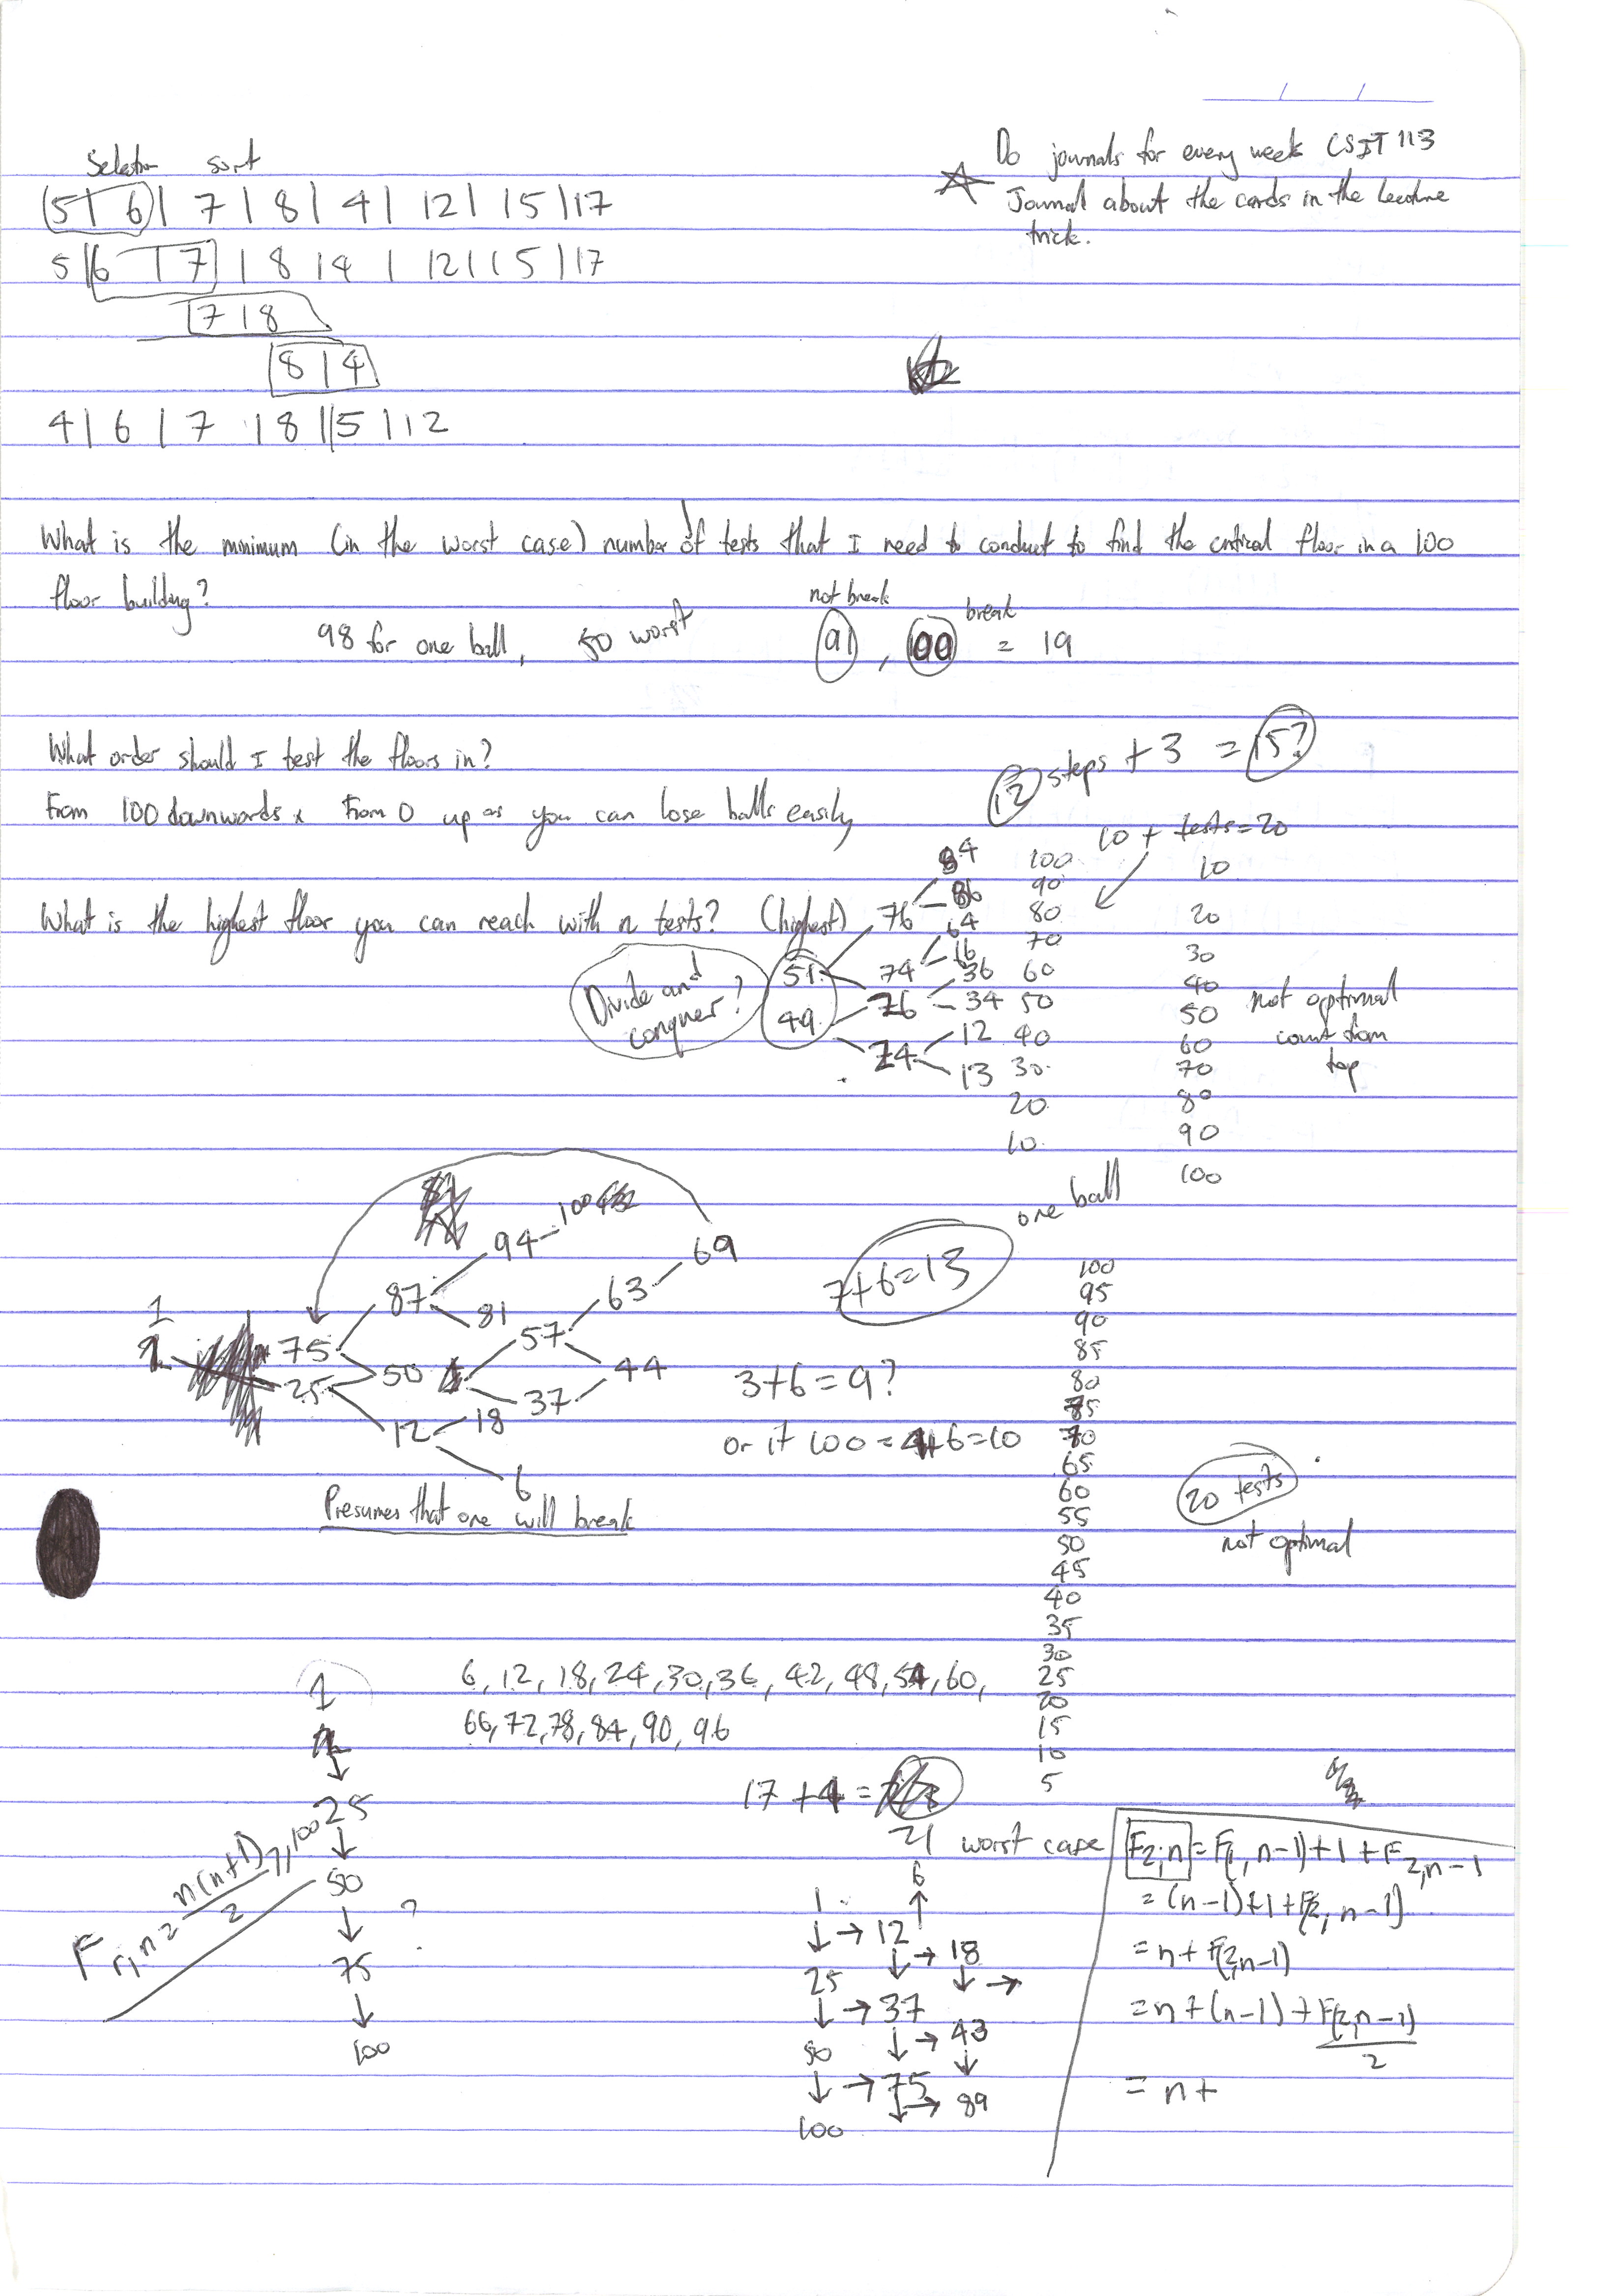 Selection sort
(5 | 6) | 7 | 8 | 4 | 12 | 15 | 17
5 | 6 | 7 | 8 | 4 | 12 | 15 | 17
7 | 8
8 | 4
4 | 6 | 7 | 8 | 5 | 12
Do journals for every week CSIT 113
Journal about the cards in the lecture
trick.
What is the minimum (in the worst case) number of tests that I need to conduct to find the critical floor in a 100
floor building?
98 for one ball, 50 worst
not break
break
91, 100 = 19
What order should I test the floors in?
From 100 downwards x From 0 up as you can lose balls easily
12 steps + 3 = 15?
10 + tests = 20
What is the highest floor you can reach with n tests? (highest)
Divide and
conquer?
51
49
76
74
26
24
84
86
64
16
36
34
12
13
100
90
80
70
60
50
40
30
20
10
10
20
30
40
50
60
70
80
90
100
not optimal
count from
top
94 - 100
69
87
63
81
57
1
75
50
44
25
37
12
18
6
Presumes that one will break
7+6=13
3+6=9?
or if 100 = 4+6=10
one ball
100
95
90
85
80
75
70
65
60
55
50
45
40
35
30
25
20
15
10
5
20 tests
not optimal
6, 12, 18, 24, 30, 36, 42, 48, 54, 60,
66, 72, 78, 84, 90, 96
17 + 4 =
21 worst case
1
↓
25
↓
50
↓
75
↓
100
?
F r,n = n(n+1)/2 7,100
6
↑
1 → 12
↓ ↓ → 18
25 ↓ →
↓ → 37
↓ → 43
50 ↓
↓ → 75
↓ → 89
100
F2;n = F(1, n-1) + 1 + F2,n-1
= (n-1) + 1 + F(2, n-1)
= n + F(2,n-1)
= n + (n-1) + F(2,n-1)
2
= n +